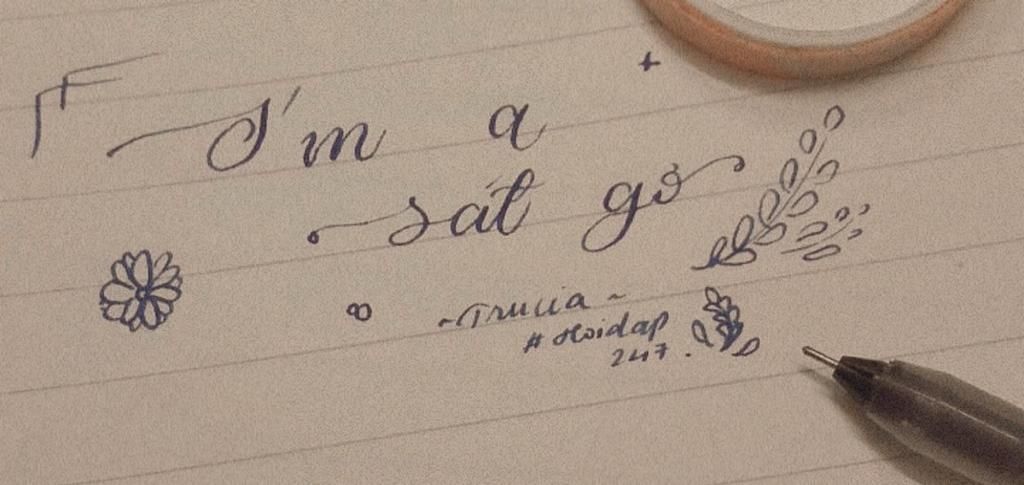 I'm a
sát gỏ
~ Trucia ~
# Hoidap
247.